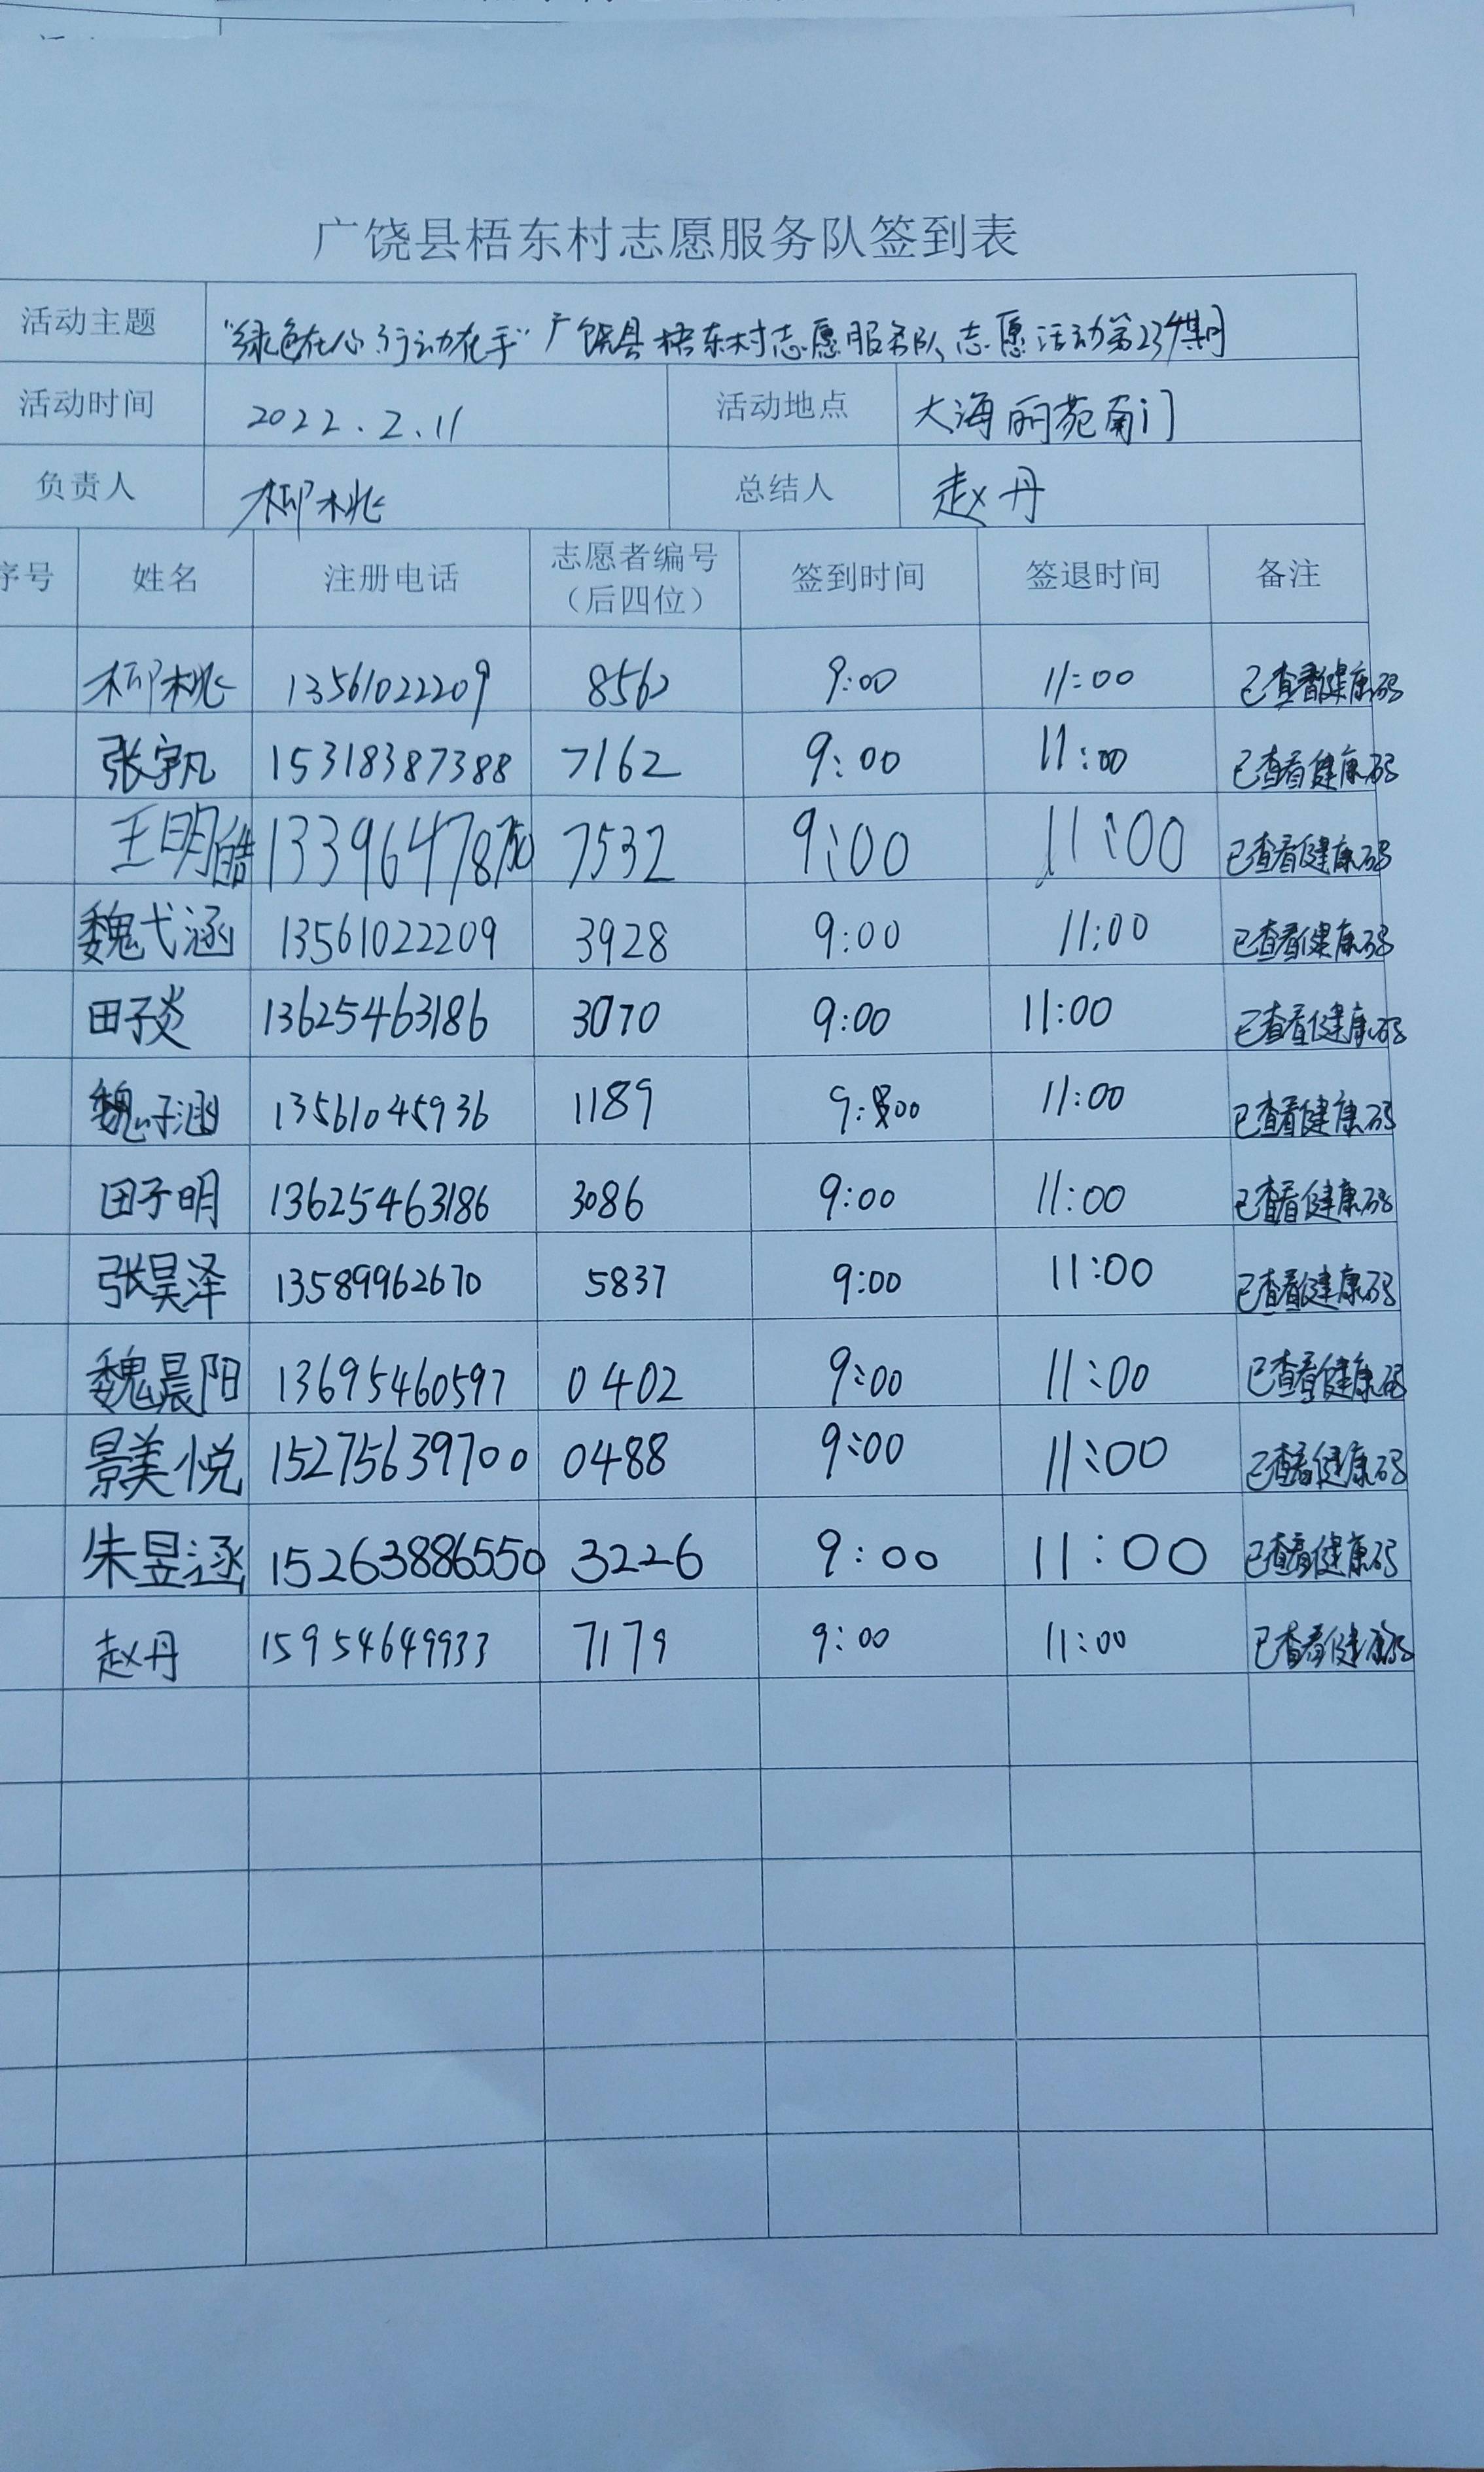 广饶县梧东村志愿服务队签到表
活动主题 "绿色在心 行动在手" 广饶县梧东村志愿服务队志愿活动第234期
活动时间 2022.2.11 活动地点 大海丽苑南门
负责人 柳桃 总结人 赵丹
序号 姓名 注册电话 志愿者编号（后四位） 签到时间 签退时间 备注
柳桃 13561022209 8562 9:00 11:00 已查看健康码
张宇凡 15318387388 7162 9:00 11:00 已查看健康码
王明皓 13396478750 7532 9:00 11:00 已查看健康码
魏弋涵 13561022209 3928 9:00 11:00 已查看健康码
田子炎 13625463186 3070 9:00 11:00 已查看健康码
魏子涵 13561045936 1189 9:00 11:00 已查看健康码
田子明 13625463186 3086 9:00 11:00 已查看健康码
张昊泽 13589962670 5837 9:00 11:00 已查看健康码
魏晨阳 13695460597 0402 9:00 11:00 已查看健康码
景美悦 15275639700 0488 9:00 11:00 已查看健康码
朱昱涵 15263886550 3226 9:00 11:00 已查看健康码
赵丹 15954649933 7179 9:00 11:00 已查看健康码